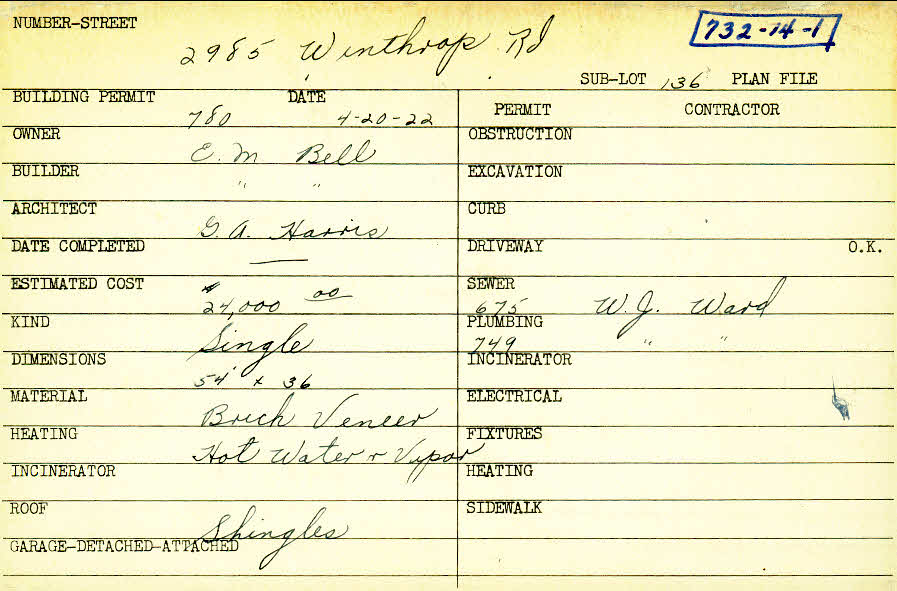 NUMBER-STREET
2985 Winthrop Rd
732-14-1
SUB-LOT 136 PLAN FILE
BUILDING PERMIT 780 DATE 4-20-22
PERMIT CONTRACTOR
OWNER E. M Bell
OBSTRUCTION
BUILDER " "
EXCAVATION
ARCHITECT G. A. Harris
CURB
DATE COMPLETED —
DRIVEWAY O.K.
ESTIMATED COST $24,000 00
SEWER 675 W. J. Ward
KIND Single
PLUMBING 749 " "
DIMENSIONS 54' x 36
INCINERATOR
MATERIAL Brick Veneer
ELECTRICAL
HEATING Hot Water r Vapor
FIXTURES
INCINERATOR
HEATING
ROOF Shingles
SIDEWALK
GARAGE-DETACHED-ATTACHED